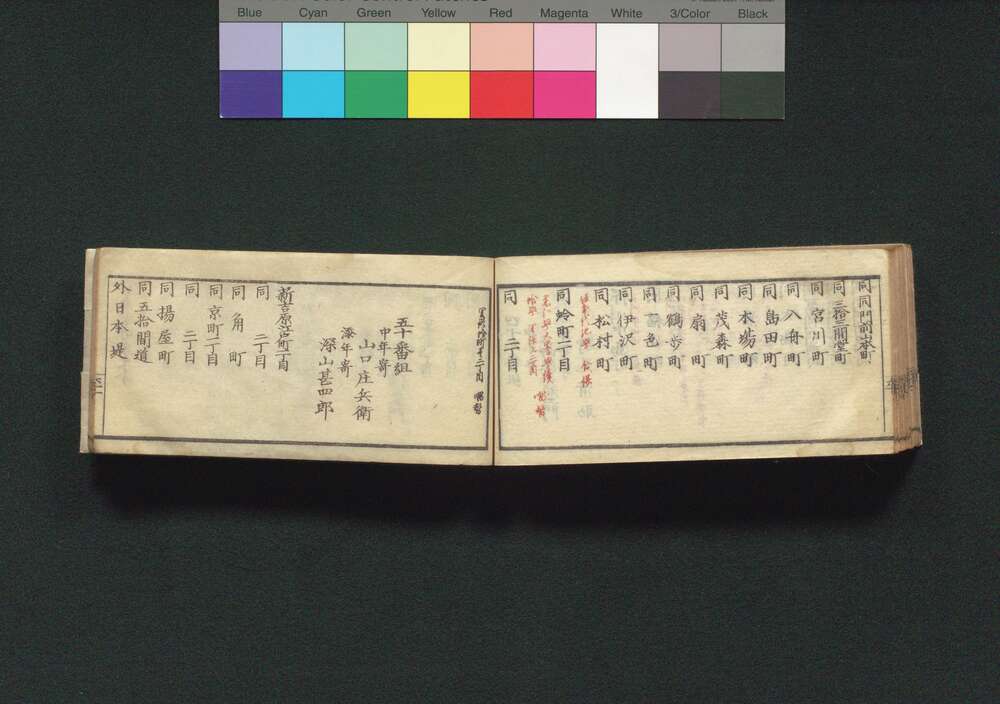 Blue Cyan Green Yellow Red Magenta White 3/Color Black
同同門前山本町
同三拾三間堂町
同宮川町
同入舟町
同島田町
同木場町
同茂森町
同扇町
同鶴歩町
同伊沢町
同松村町
同蛤町一丁目
同二丁目
五十番組
中年寄
山口庄兵衛
添年寄
深山甚四郎
新吉原江戸町一丁目
同二丁目
同角町
同京町一丁目
同二丁目
同揚屋町
同五拾間道
外日本堤